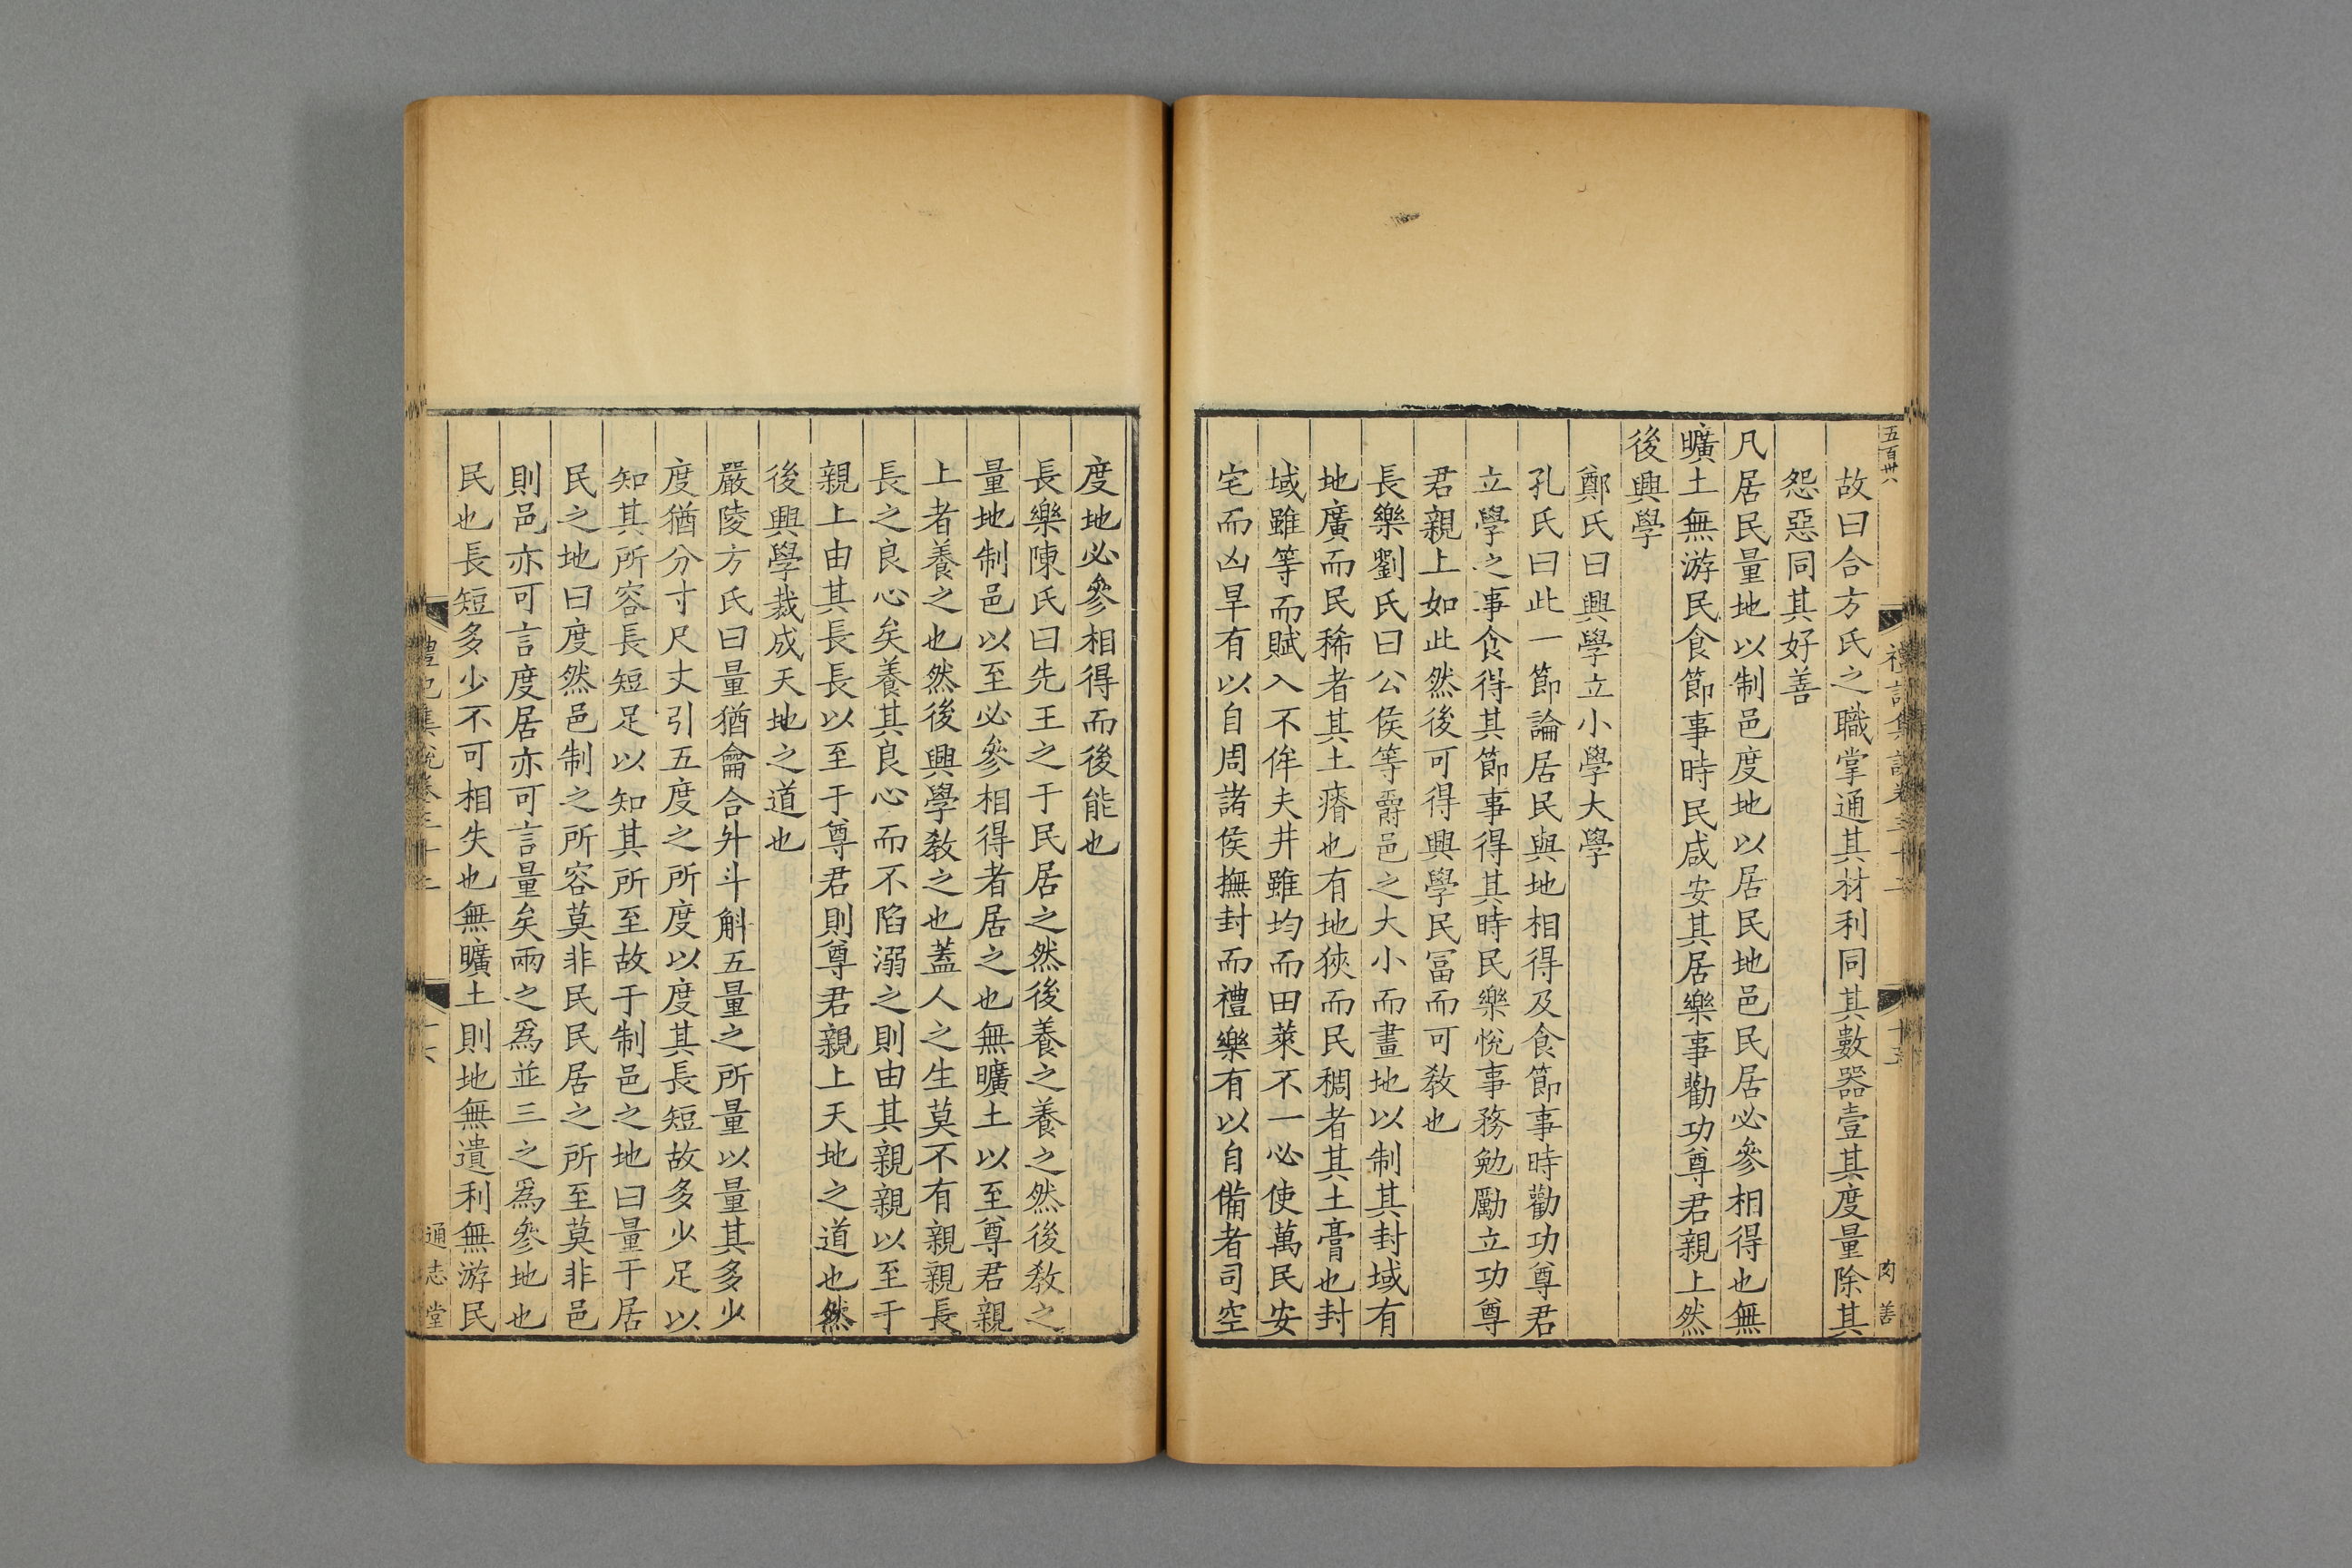 五百卅八
故曰合方氏之職掌通其材利同其數器壹其度量除其
怨惡同其好善
凡居民量地以制邑度地以居民地邑民居必參相得也無
曠土無游民食節事時民咸安其居樂事勸功尊君親上然
後興學
鄭氏曰興學立小學大學
孔氏曰此一節論居民與地相得及食節事時勸功尊君
立學之事食得其節事得其時民樂悅事務勉勵立功尊
君親上如此然後可得興學民冨而可敎也
長樂劉氏曰公侯等爵邑之大小而畫地以制其封域有
地廣而民稀者其土瘠也有地狹而民稠者其土膏也封
域雖等而賦入不侔夫井雖均而田萊不一必使萬民安
宅而凶旱有以自周諸侯撫封而禮樂有以自備者司空
度地必參相得而後能也
長樂陳氏曰先王之于民居之然後養之養之然後敎之
量地制邑以至必參相得者居之也無曠土以至尊君親
上者養之也然後興學敎之也蓋人之生莫不有親親長
長之良心矣養其良心而不陷溺之則由其親親以至于
親上由其長長以至于尊君則尊君親上天地之道也然
後興學裁成天地之道也
嚴陵方氏曰量猶龠合升斗斛五量之所量以量其多少
度猶分寸尺丈引五度之所度以度其長短故多少足以
知其所容長短足以知其所至故于制邑之地曰量于居
民之地曰度然邑制之所容莫非民民居之所至莫非邑
則邑亦可言度居亦可言量矣兩之爲並三之爲參地也
民也長短多少不可相失也無曠土則地無遺利無游民
通志堂